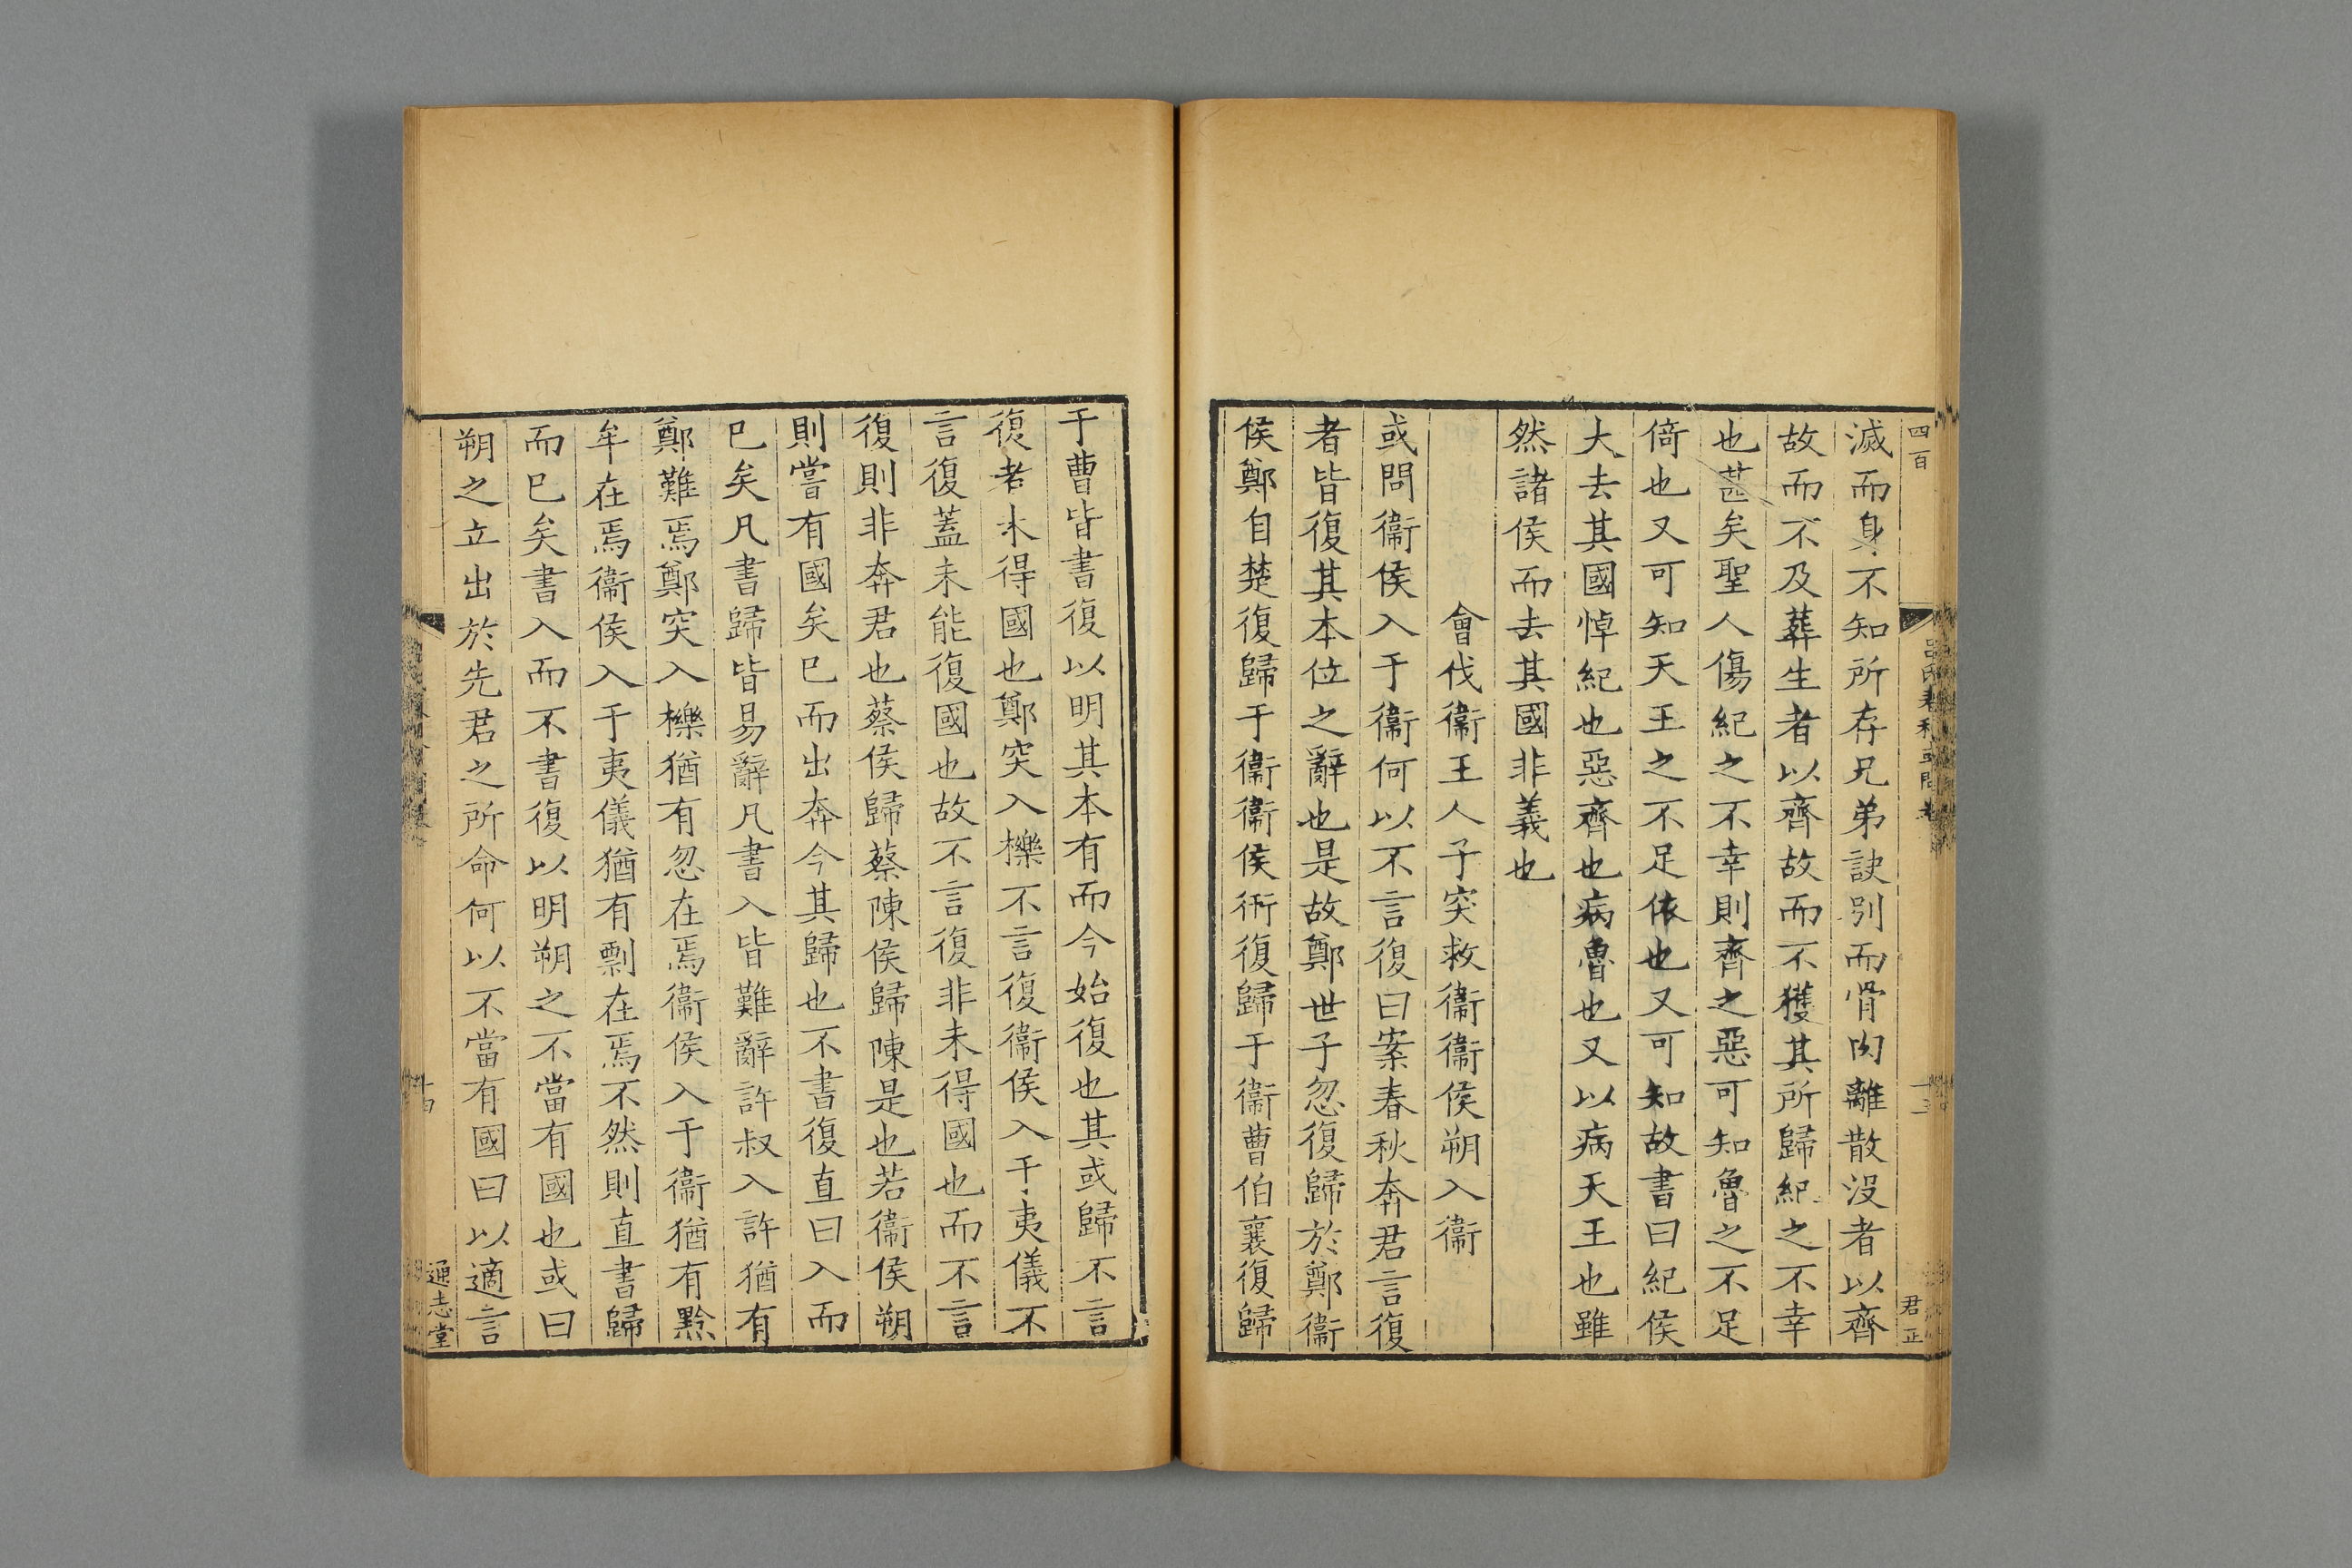 四百
呂氏春秋或問卷
君正
滅而身不知所存兄弟訣別而骨肉離散没者以齊
故而不及葬生者以齊故而不獲其所歸紀之不幸
也甚矣聖人傷紀之不幸則齊之惡可知魯之不足
倚也又可知天王之不足依也又可知故書曰紀侯
大去其國悼紀也惡齊也病魯也又以病天王也雖
然諸侯而去其國非義也
會伐衞王人子突救衞衞侯朔入衞
或問衞侯入于衞何以不言復曰案春秋奔君言復
者皆復其本位之辭也是故鄭世子忽復歸於鄭衞
侯鄭自楚復歸于衞衞侯衎復歸于衞曹伯襄復歸
于曹皆書復以明其本有而今始復也其或歸不言
復者未得國也鄭突入櫟不言復衞侯入于夷儀不
言復蓋未能復國也故不言復非未得國也而不言
復則非奔君也蔡侯歸蔡陳侯歸陳是也若衞侯朔
則嘗有國矣已而出奔今其歸也不書復直曰入而
已矣凡書歸皆易辭凡書入皆難辭許叔入許猶有
鄭難焉鄭突入櫟猶有忽在焉衞侯入于衞猶有黔
牟在焉衞侯入于夷儀猶有剽在焉不然則直書歸
而已矣書入而不書復以明朔之不當有國也或曰
朔之立出於先君之所命何以不當有國曰以適言
十四
通志堂